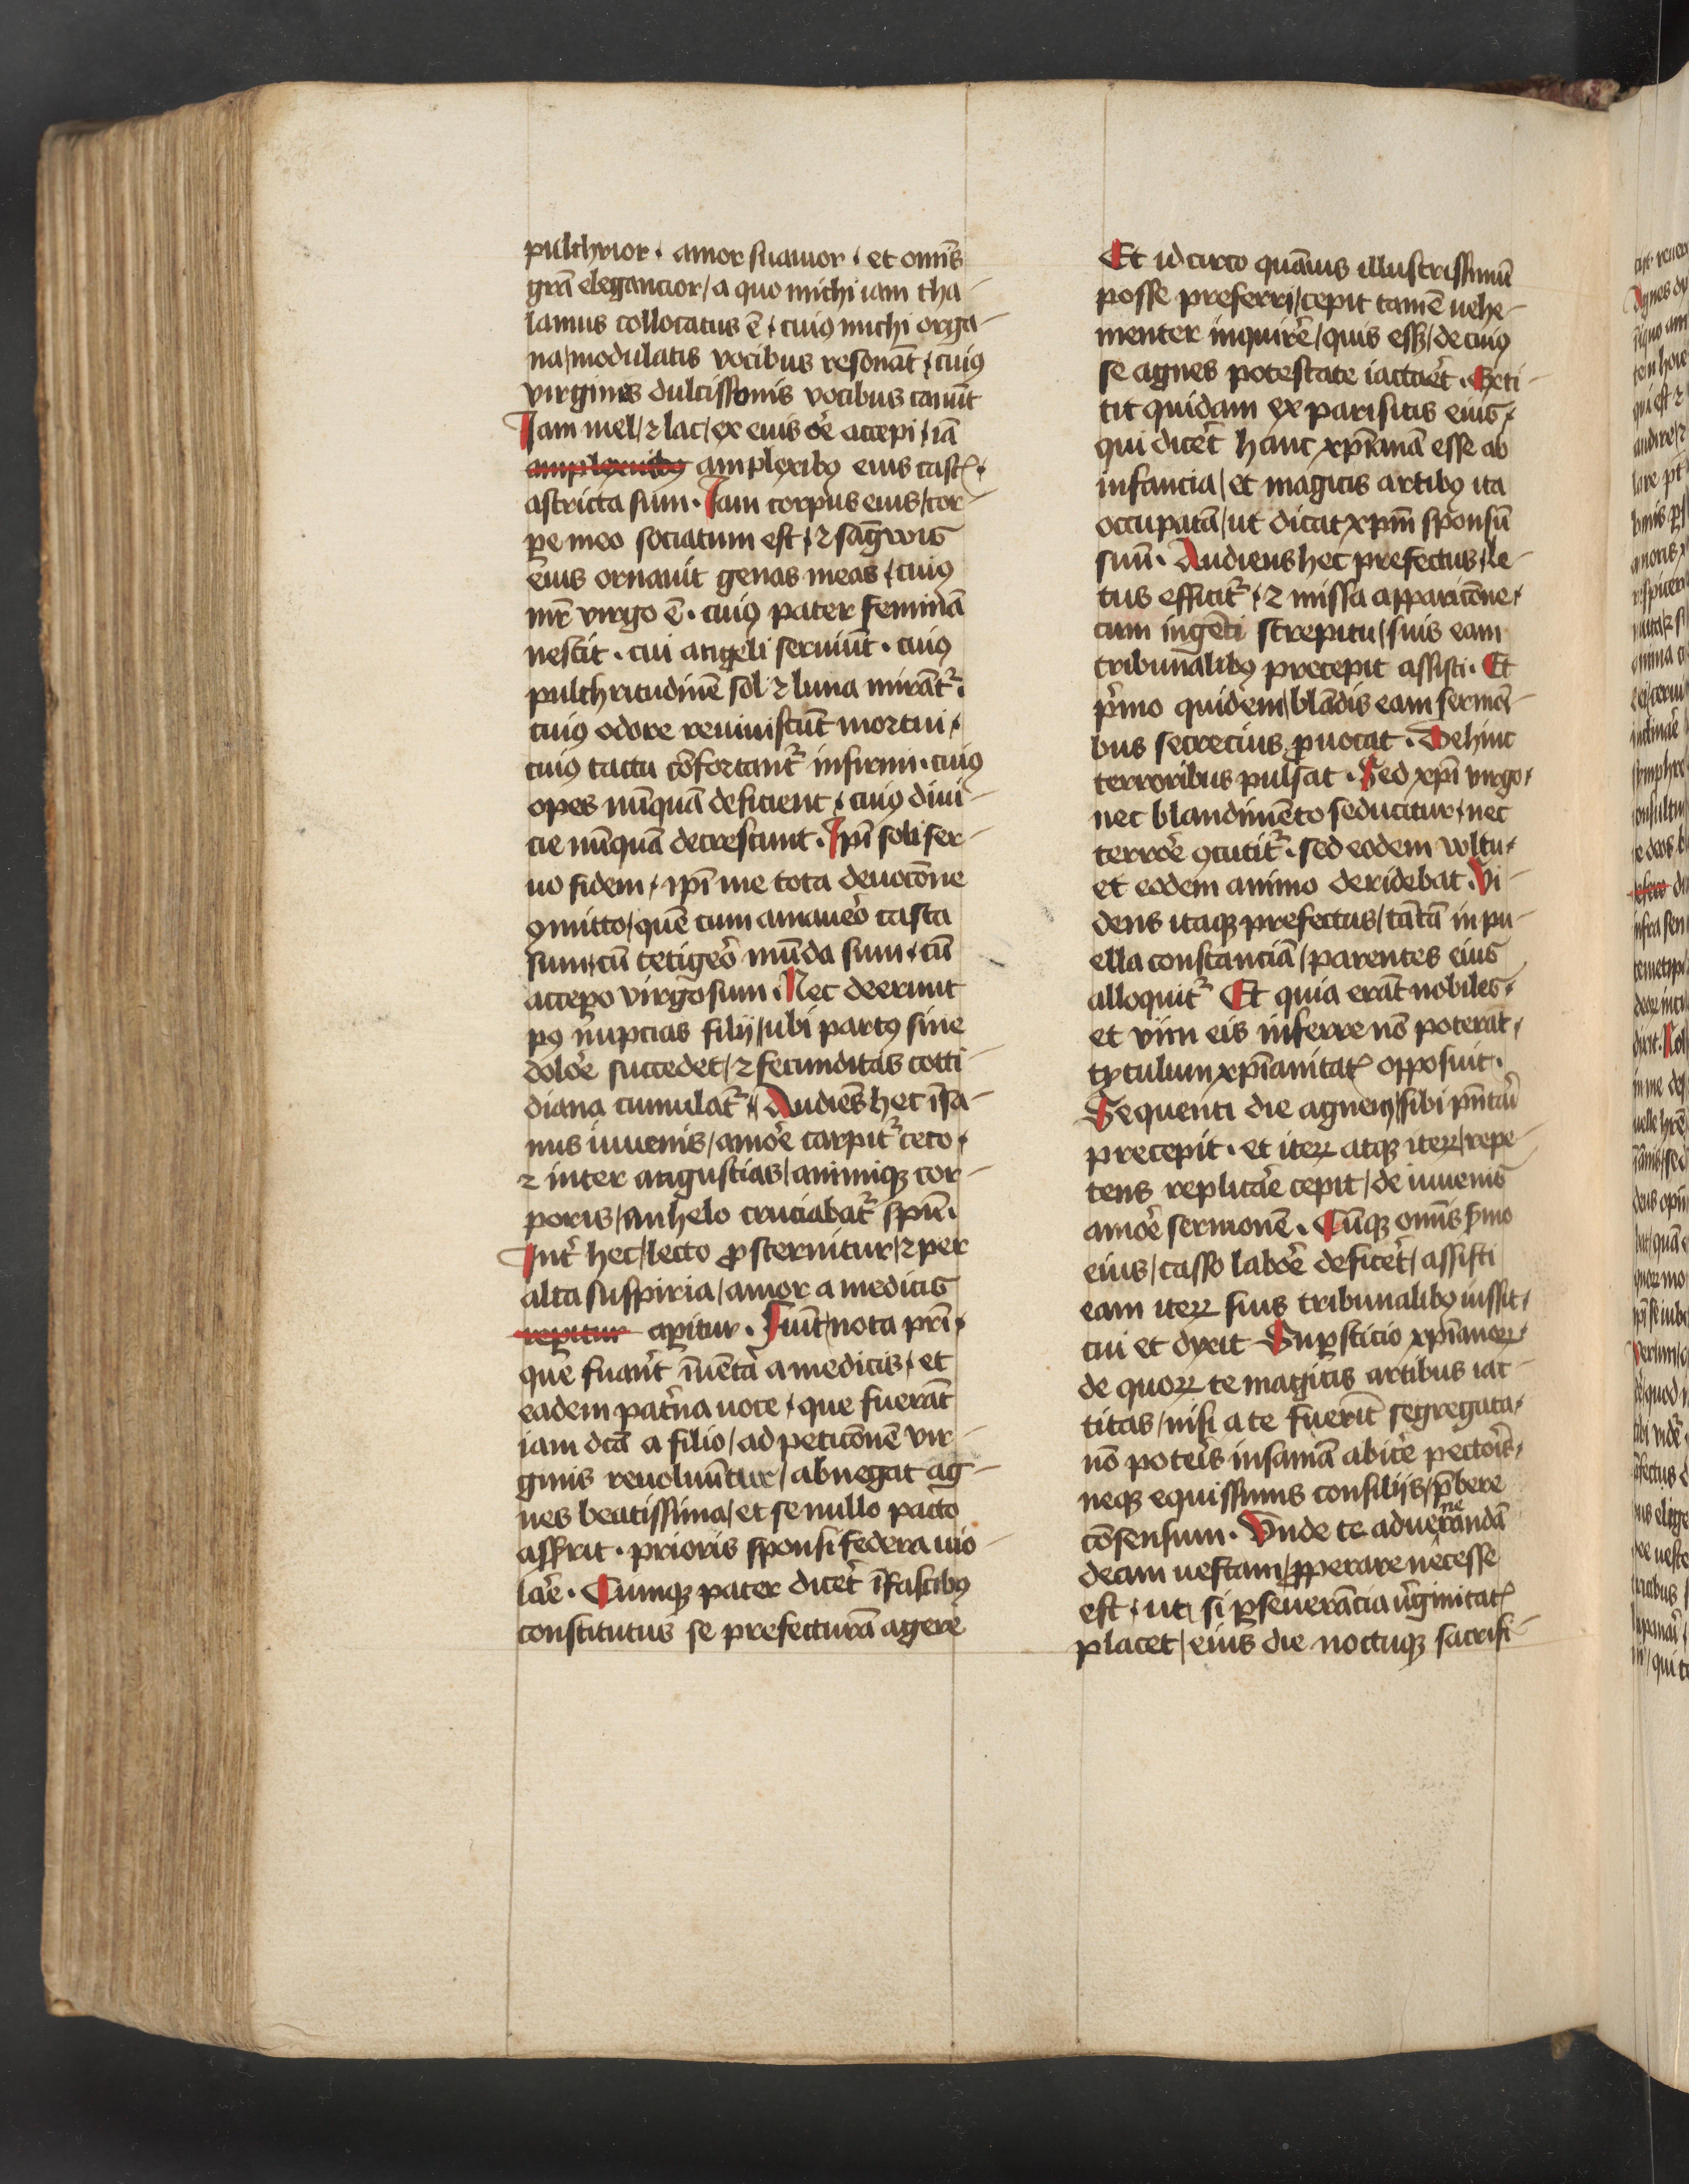 pulchrior · amor suauior · et om̄is
gr̄a elegancior / a quo michi iam tha-
lamus collocatus ē · cuiꝰ michi orga-
na / modulatis vocibus resonāt · cuiꝰ
virgines dulcissimis vocibus canūt
Iam mel / ⁊ lac / ex eius ōe accepi · iā
amplexuibꝰ amplexibꝰ eius castꝭ ·
astricta sum · Iam corpus eius / cor-
ꝑe meo sociatum est · ⁊ sāgwis
eius ornauit genas meas · cuiꝰ
mr̄ virgo ē · cuiꝰ pater feminā
nescit · cui angeli seruiūt · cuiꝰ
pulchritudinē sol ⁊ luna mirāt᷑ ·
cuiꝰ odore reuiuiscūt mortui ·
cuiꝰ tactu cōfortant᷑ infirmi · cuiꝰ
opes nūquā deficient · cuiꝰ diui-
cie nūquā decrescunt · Ip̄i soli ser-
uo fidem · ip̄i me tota deuocōne
ꝯmitto / quē cum amauero casta
sum · cū tetigero mūda sum · cū
accepo virgo sum · Nec deerunt
pꝰ nupcias filij / ubi partꝰ sine
doloē succedet / ⁊ fecunditas cotti-
diana cumulat᷑ · Audiēs hec īsa-
nus iuuenis / amoē carpit᷑ ceco ·
⁊ inter angustias / animiqꝫ cor-
poris / anhelo cruciabat᷑ sp̄u ·
Int̉ hec / lecto ꝓsternitur / ⁊ per
alta suspiria / amor a medicis
repitur apitur · Fiūt / nota pr̄i ·
que fuant̉ īuenta a medicis · et
eadem pat̉na uoce · que fuerāt
iam dc̄a a filio / ad peticōnē vir-
ginis reuoluūtur / abnegat ag-
nes beatissima / et se nullo pacto
assʼrit · prioris sponsi federa uio-
lar̉e · Cumqꝫ pater dicer̉t ī fascibꝰ
constitutus se prefecturā agere
Et idcirco quāuis illustrissimū
posse preferri / cepit tamē uehe-
menter inquirē / quis essꝫ / de cuiꝰ
se agnes potestate iactaret · Exti-
tit quidam ex parisitis eius ·
qui dicer̉t hanc xp̄ianā esse ab
infancia / et magicis artibꝰ ita
occupatā / ut dicat xp̄m sponsū
suū · Audiens hec prefectus / le-
tus efficit᷑ · ⁊ missa apparicōne ·
cum ingēti strepitu / suis eam
tribunalibꝰ precepit assisti · Et
pʼmo quidem / blādis eam sermōi-
bus secrecius ꝓuocat · Dehinc
terroribus pulsat · Sed xp̄i virgo ·
nec blandimēto seducitur · nec
terrore ꝯcutit᷑ · sed eodem vultu ·
et eodem animo deridebat · Vi-
dens itaqꝫ prefectus / tātā in pu-
ella constanciā / parentes eius
alloquit᷑ Et quia erāt nobiles ·
et vim eis inferre nō poterāt ·
tytulum xp̄ianitatꝭ opposuit ·
Sequenti die agnem / sibi pn̄tari
precepit · et iteꝝ atqꝫ iteꝝ / repe-
tens replicar̉e cepit / de iuuenis
amoē sermonē · Cūqꝫ om̄is sʼmo
eius / casso laboē deficer̉t / assisti
eam iteꝝ suis tribunalibꝰ iussit ·
cui et dyxit Suꝑsticio xp̄ianoꝝ ·
de quoꝝ te magicis artibus iac-
titas / nisi a te fuerit segregata ·
nō poteris insaniā abicer̉e pectoris ·
neqꝫ equissimis consilijs / p̄bere
cōsensum · Vnde te ad ueneranda
deam uestam / ꝓperare necesse
est · ut · si ꝑseuerācia vʼginitatꝭ
placet / eius die noctuqꝫ sacrifi-